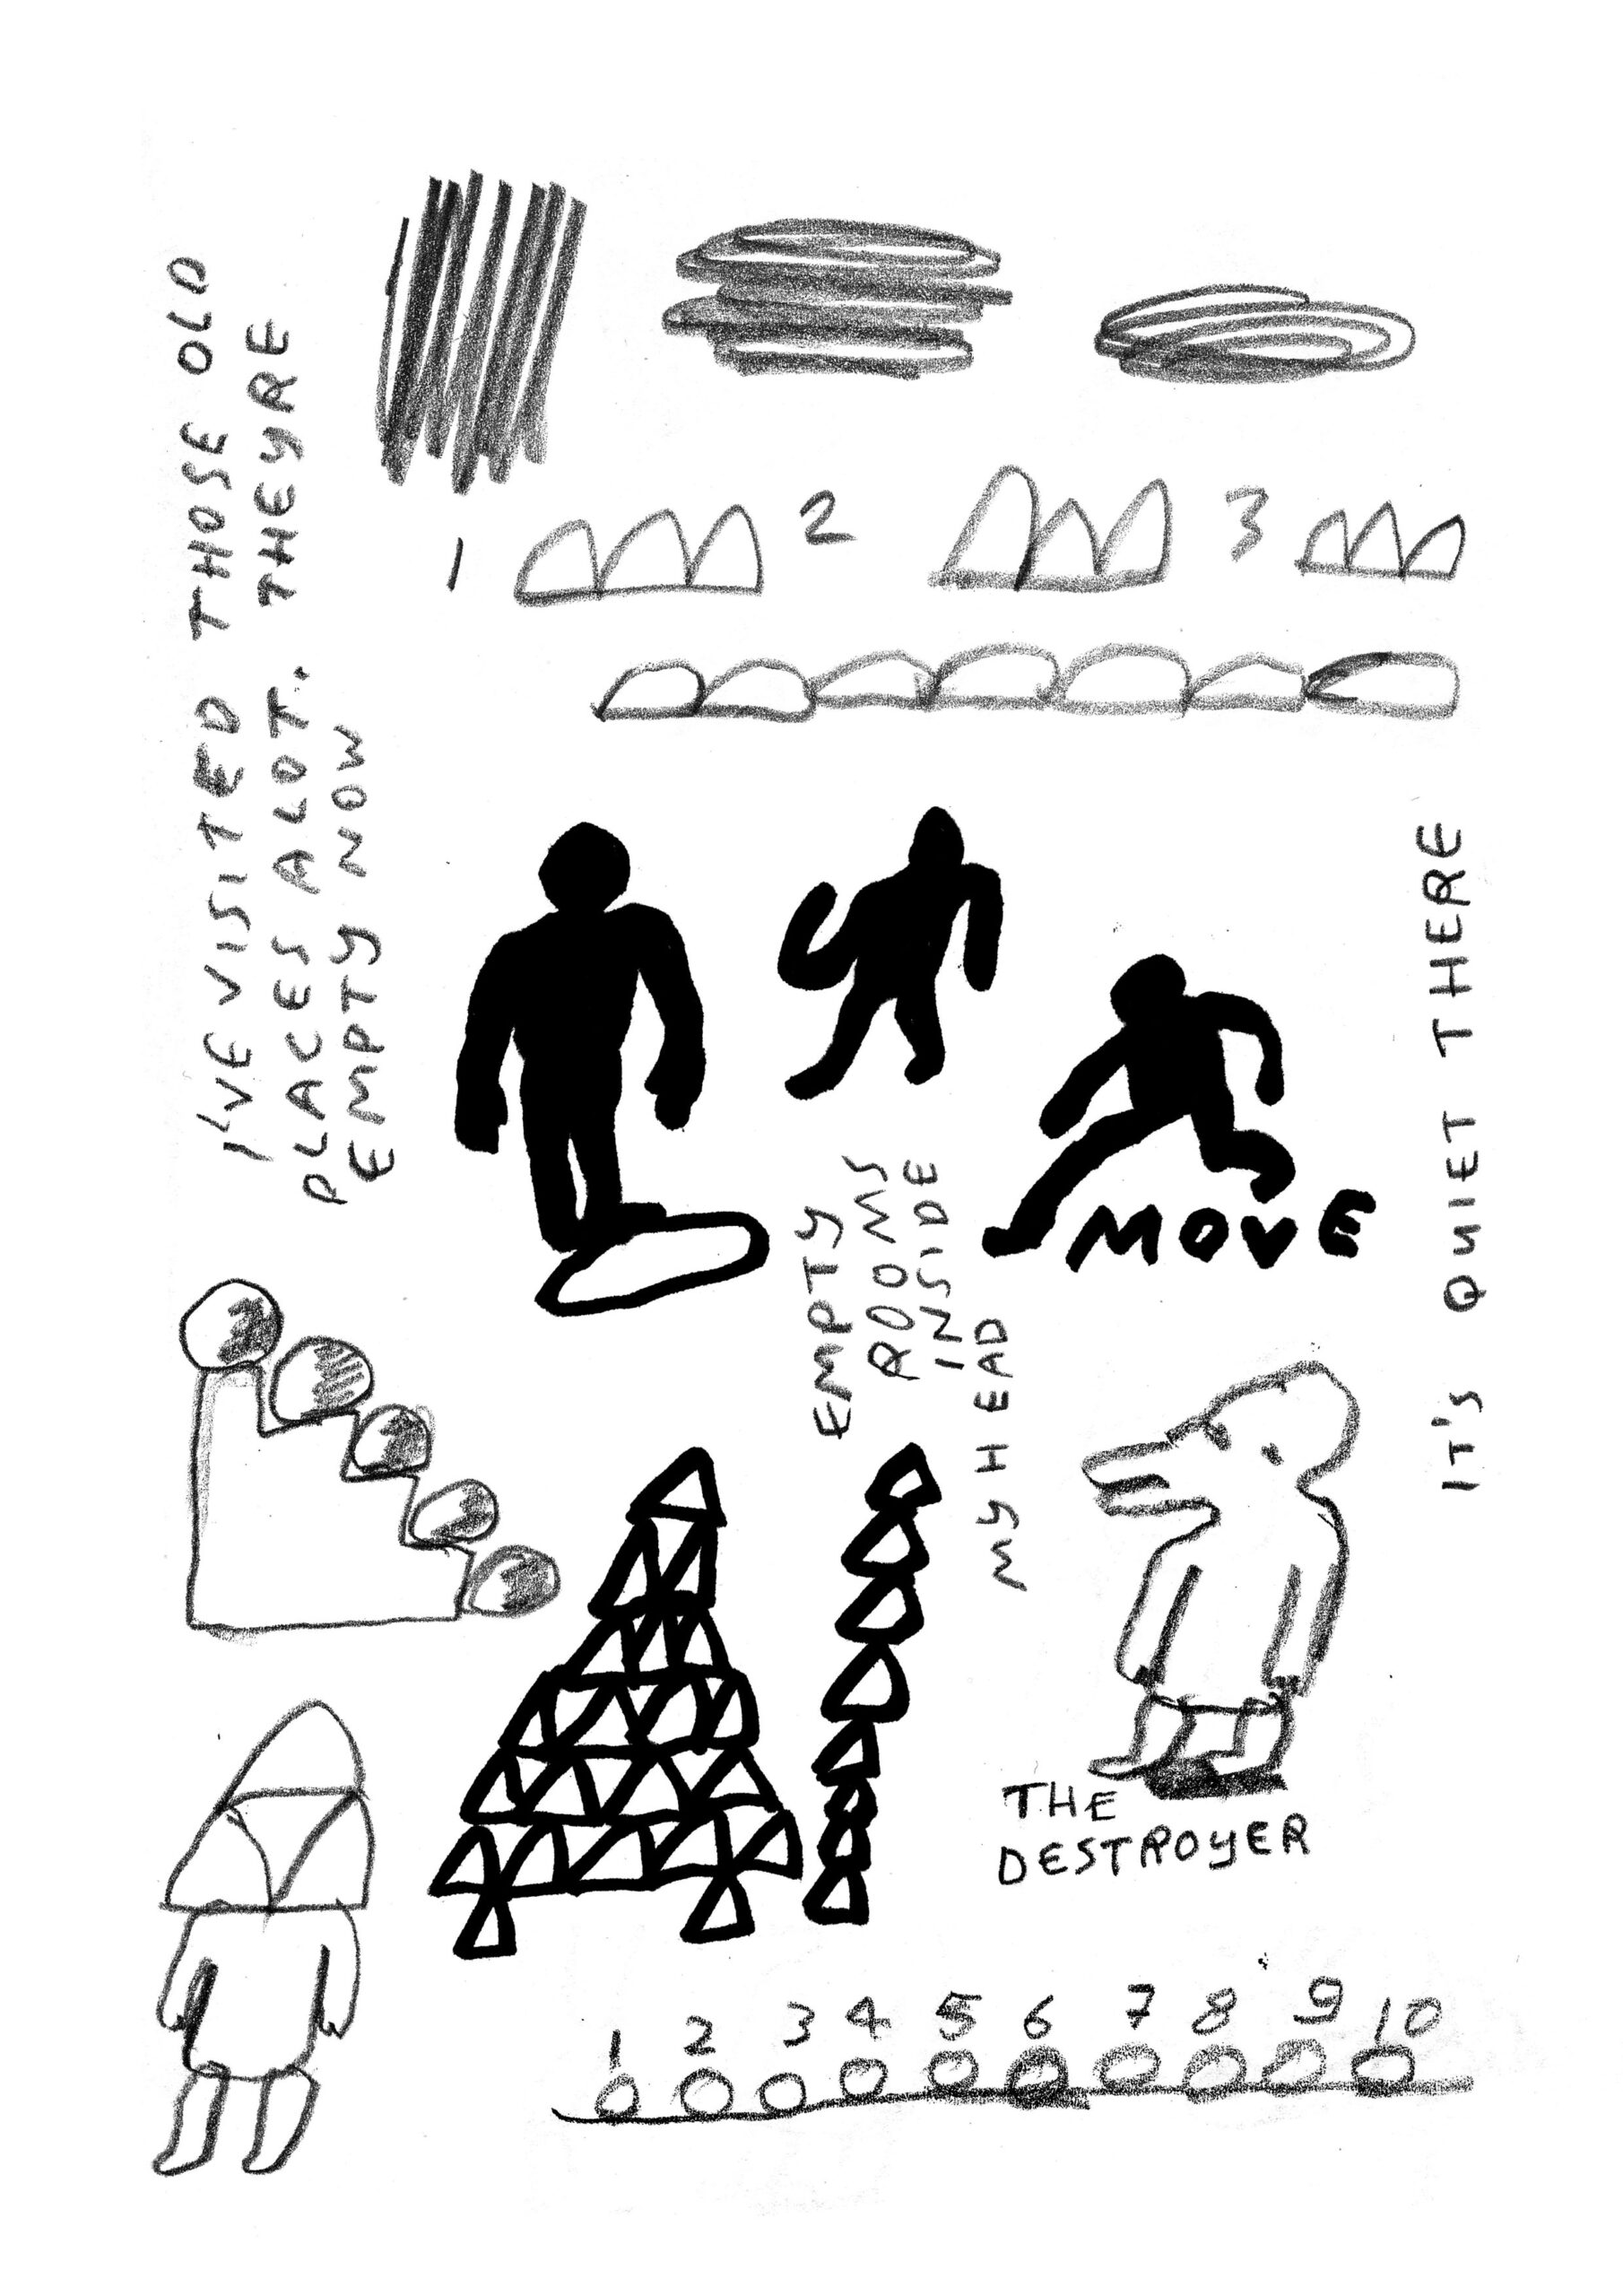 I'VE VISITED THOSE OLD
PLACES ALOT. THEYRE
EMPTY NOW
1 2 3
MOVE
EMPTY
ROOMS
INSIDE
MY HEAD
IT'S QUIET THERE
THE
DESTROYER
1 2 3 4 5 6 7 8 9 10